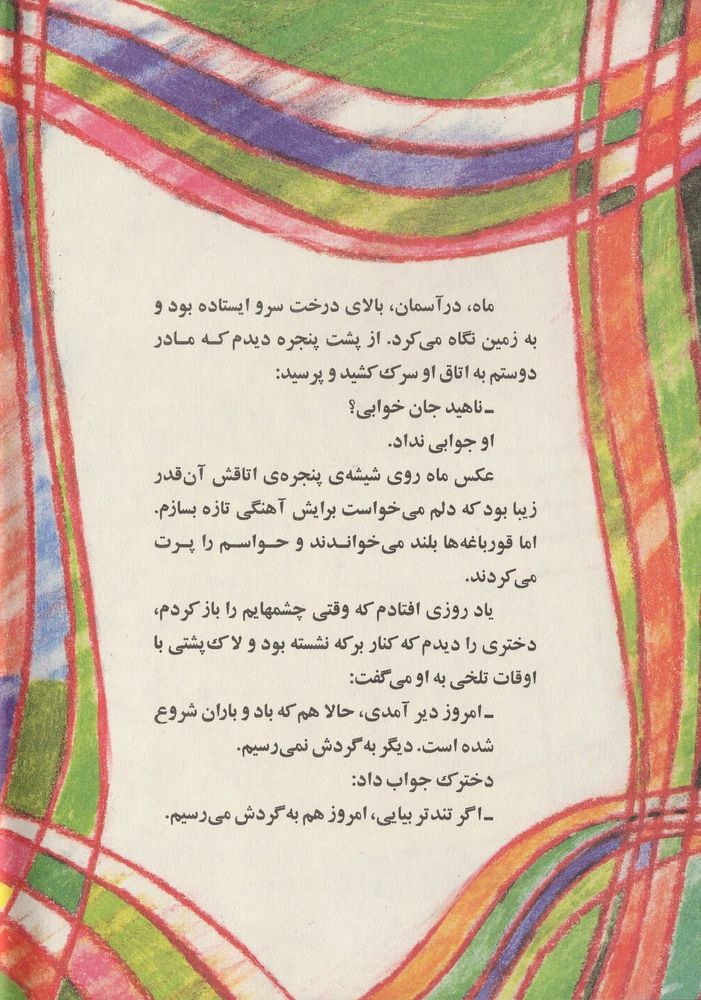 ماه، در آسمان، بالای درخت سرو ایستاده بود و
به زمین نگاه می‌کرد. از پشت پنجره دیدم که مادر
دوستم به اتاق او سرک کشید و پرسید:
ـ ناهید جان خوابی؟
او جوابی نداد.
عکس ماه روی شیشه‌ی پنجره‌ی اتاقش آن‌قدر
زیبا بود که دلم می‌خواست برایش آهنگی تازه بسازم.
اما قورباغه‌ها بلند می‌خواندند و حواسم را پرت
می‌کردند.
یاد روزی افتادم که وقتی چشمهایم را باز کردم،
دختری را دیدم که کنار برکه نشسته بود و لاک‌پشتی با
اوقات تلخی به او می‌گفت:
ـ امروز دیر آمدی، حالا هم که باد و باران شروع
شده است. دیگر به گردش نمی‌رسیم.
دخترک جواب داد:
ـ اگر تندتر بیایی، امروز هم به گردش می‌رسیم.